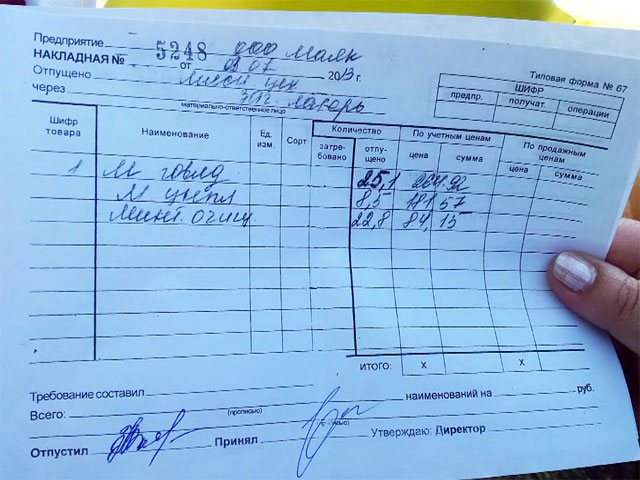 Предприятие ООО Маяк
НАКЛАДНАЯ № 5248 от 07 2013 г.
Отпущено цех
через лагерь
материально-ответственное лицо
Типовая форма № 67
ШИФР
предпр. получат. операции
Шифр товара Наименование Ед. изм. Сорт Количество По учетным ценам По продажным ценам
затребовано отпущено цена сумма цена сумма
1 М говяд 25,1 264.92
М цыпл 8,5 181 57
Минт. очищ 22,8 84, 15
ИТОГО: х х
Требование составил
Всего: наименований на руб.
(прописью)
Отпустил Принял Утверждаю: Директор